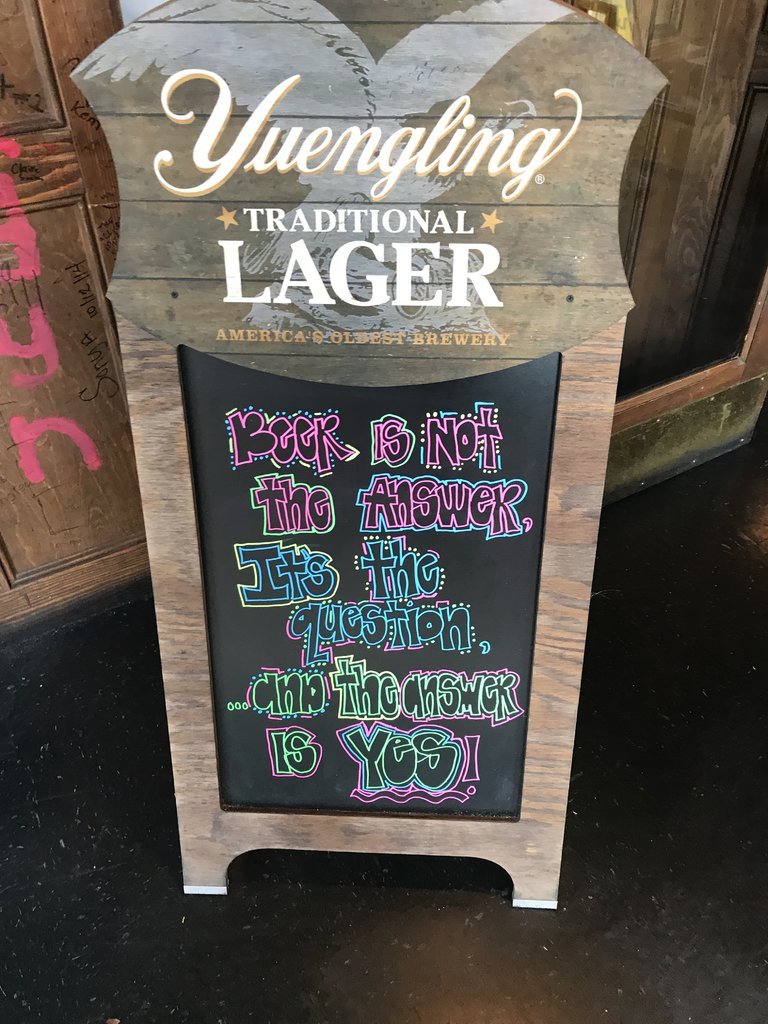 Yuengling®
TRADITIONAL
LAGER
AMERICA'S OLDEST BREWERY
Beer is Not
the Answer,
It's the
question,
...and the answer
is Yes!
Sonya 10/12/14